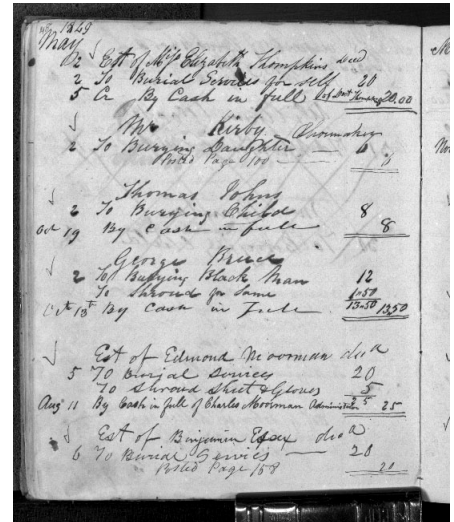 1849
May
2 Est of Mrs Elizabeth Thompkins decd
2 To Burial Services for self 20
5 Cr By Cash in full 20.00
Mr Kirby Shoemaker
2 To Burying Daughter 6
Posted Page 100 6
Thomas Johns
2 To Burying Child 8
Oct 19 By Cash in full 8
George Bruce
2 To Burying Black Man 12
To Shroud for Same 1.50
Oct 13th By Cash in full 13.50 13.50
Est of Edmond Moorman decd
5 To Burial Services 20
To Shroud Sheet & Gloves 5
Aug 11 By Cash in full of Charles Moorman Administrator 25 25
Est of Binjimin Essex decd
6 To Burial Servics 20
Posted Page 158 20